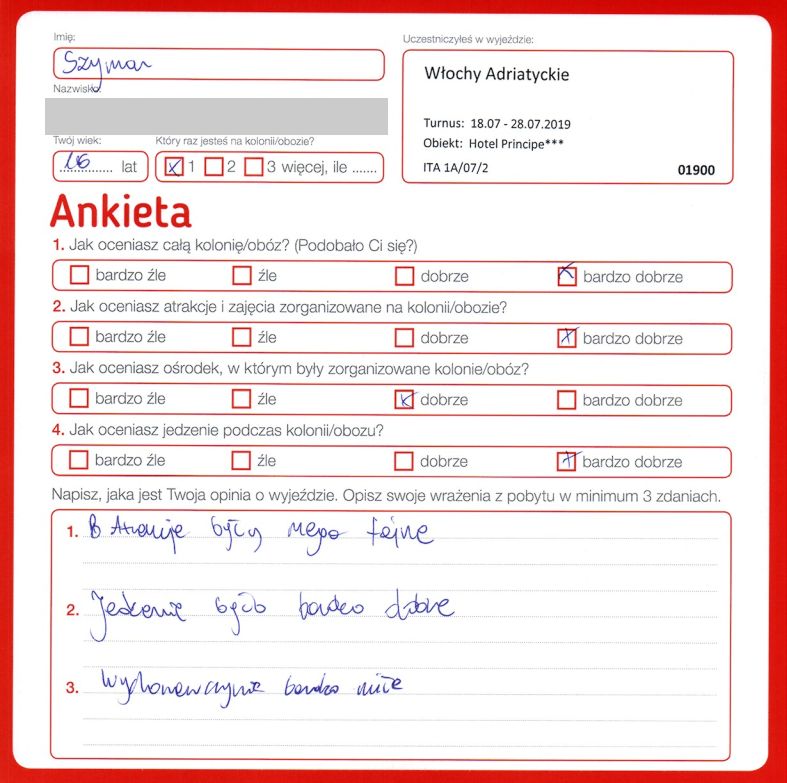 Imię:
Szymon
Nazwisko:
Twój wiek:
16 lat
Który raz jesteś na kolonii/obozie?
1 2 3 więcej, ile .......
Uczestniczyłeś w wyjeździe:
Włochy Adriatyckie
Turnus: 18.07 - 28.07.2019
Obiekt: Hotel Principe***
ITA 1A/07/2 01900
Ankieta
1. Jak oceniasz całą kolonię/obóz? (Podobało Ci się?)
bardzo źle źle dobrze bardzo dobrze
2. Jak oceniasz atrakcje i zajęcia zorganizowane na kolonii/obozie?
bardzo źle źle dobrze bardzo dobrze
3. Jak oceniasz ośrodek, w którym były zorganizowane kolonie/obóz?
bardzo źle źle dobrze bardzo dobrze
4. Jak oceniasz jedzenie podczas kolonii/obozu?
bardzo źle źle dobrze bardzo dobrze
Napisz, jaka jest Twoja opinia o wyjeździe. Opisz swoje wrażenia z pobytu w minimum 3 zdaniach.
1. były mega fajne
2. Jedzenie było bardzo dobre
3. Wychowawczynie bardzo miłe